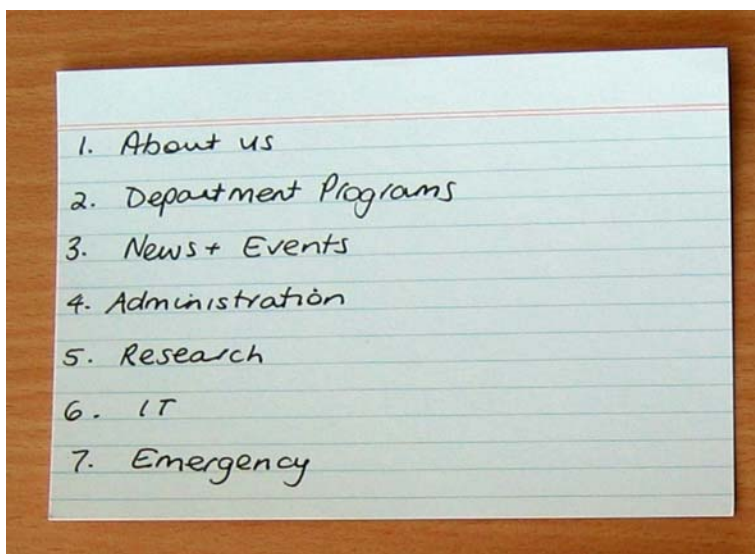 1. About us
2. Department Programs
3. News + Events
4. Administration
5. Research
6. IT
7. Emergency